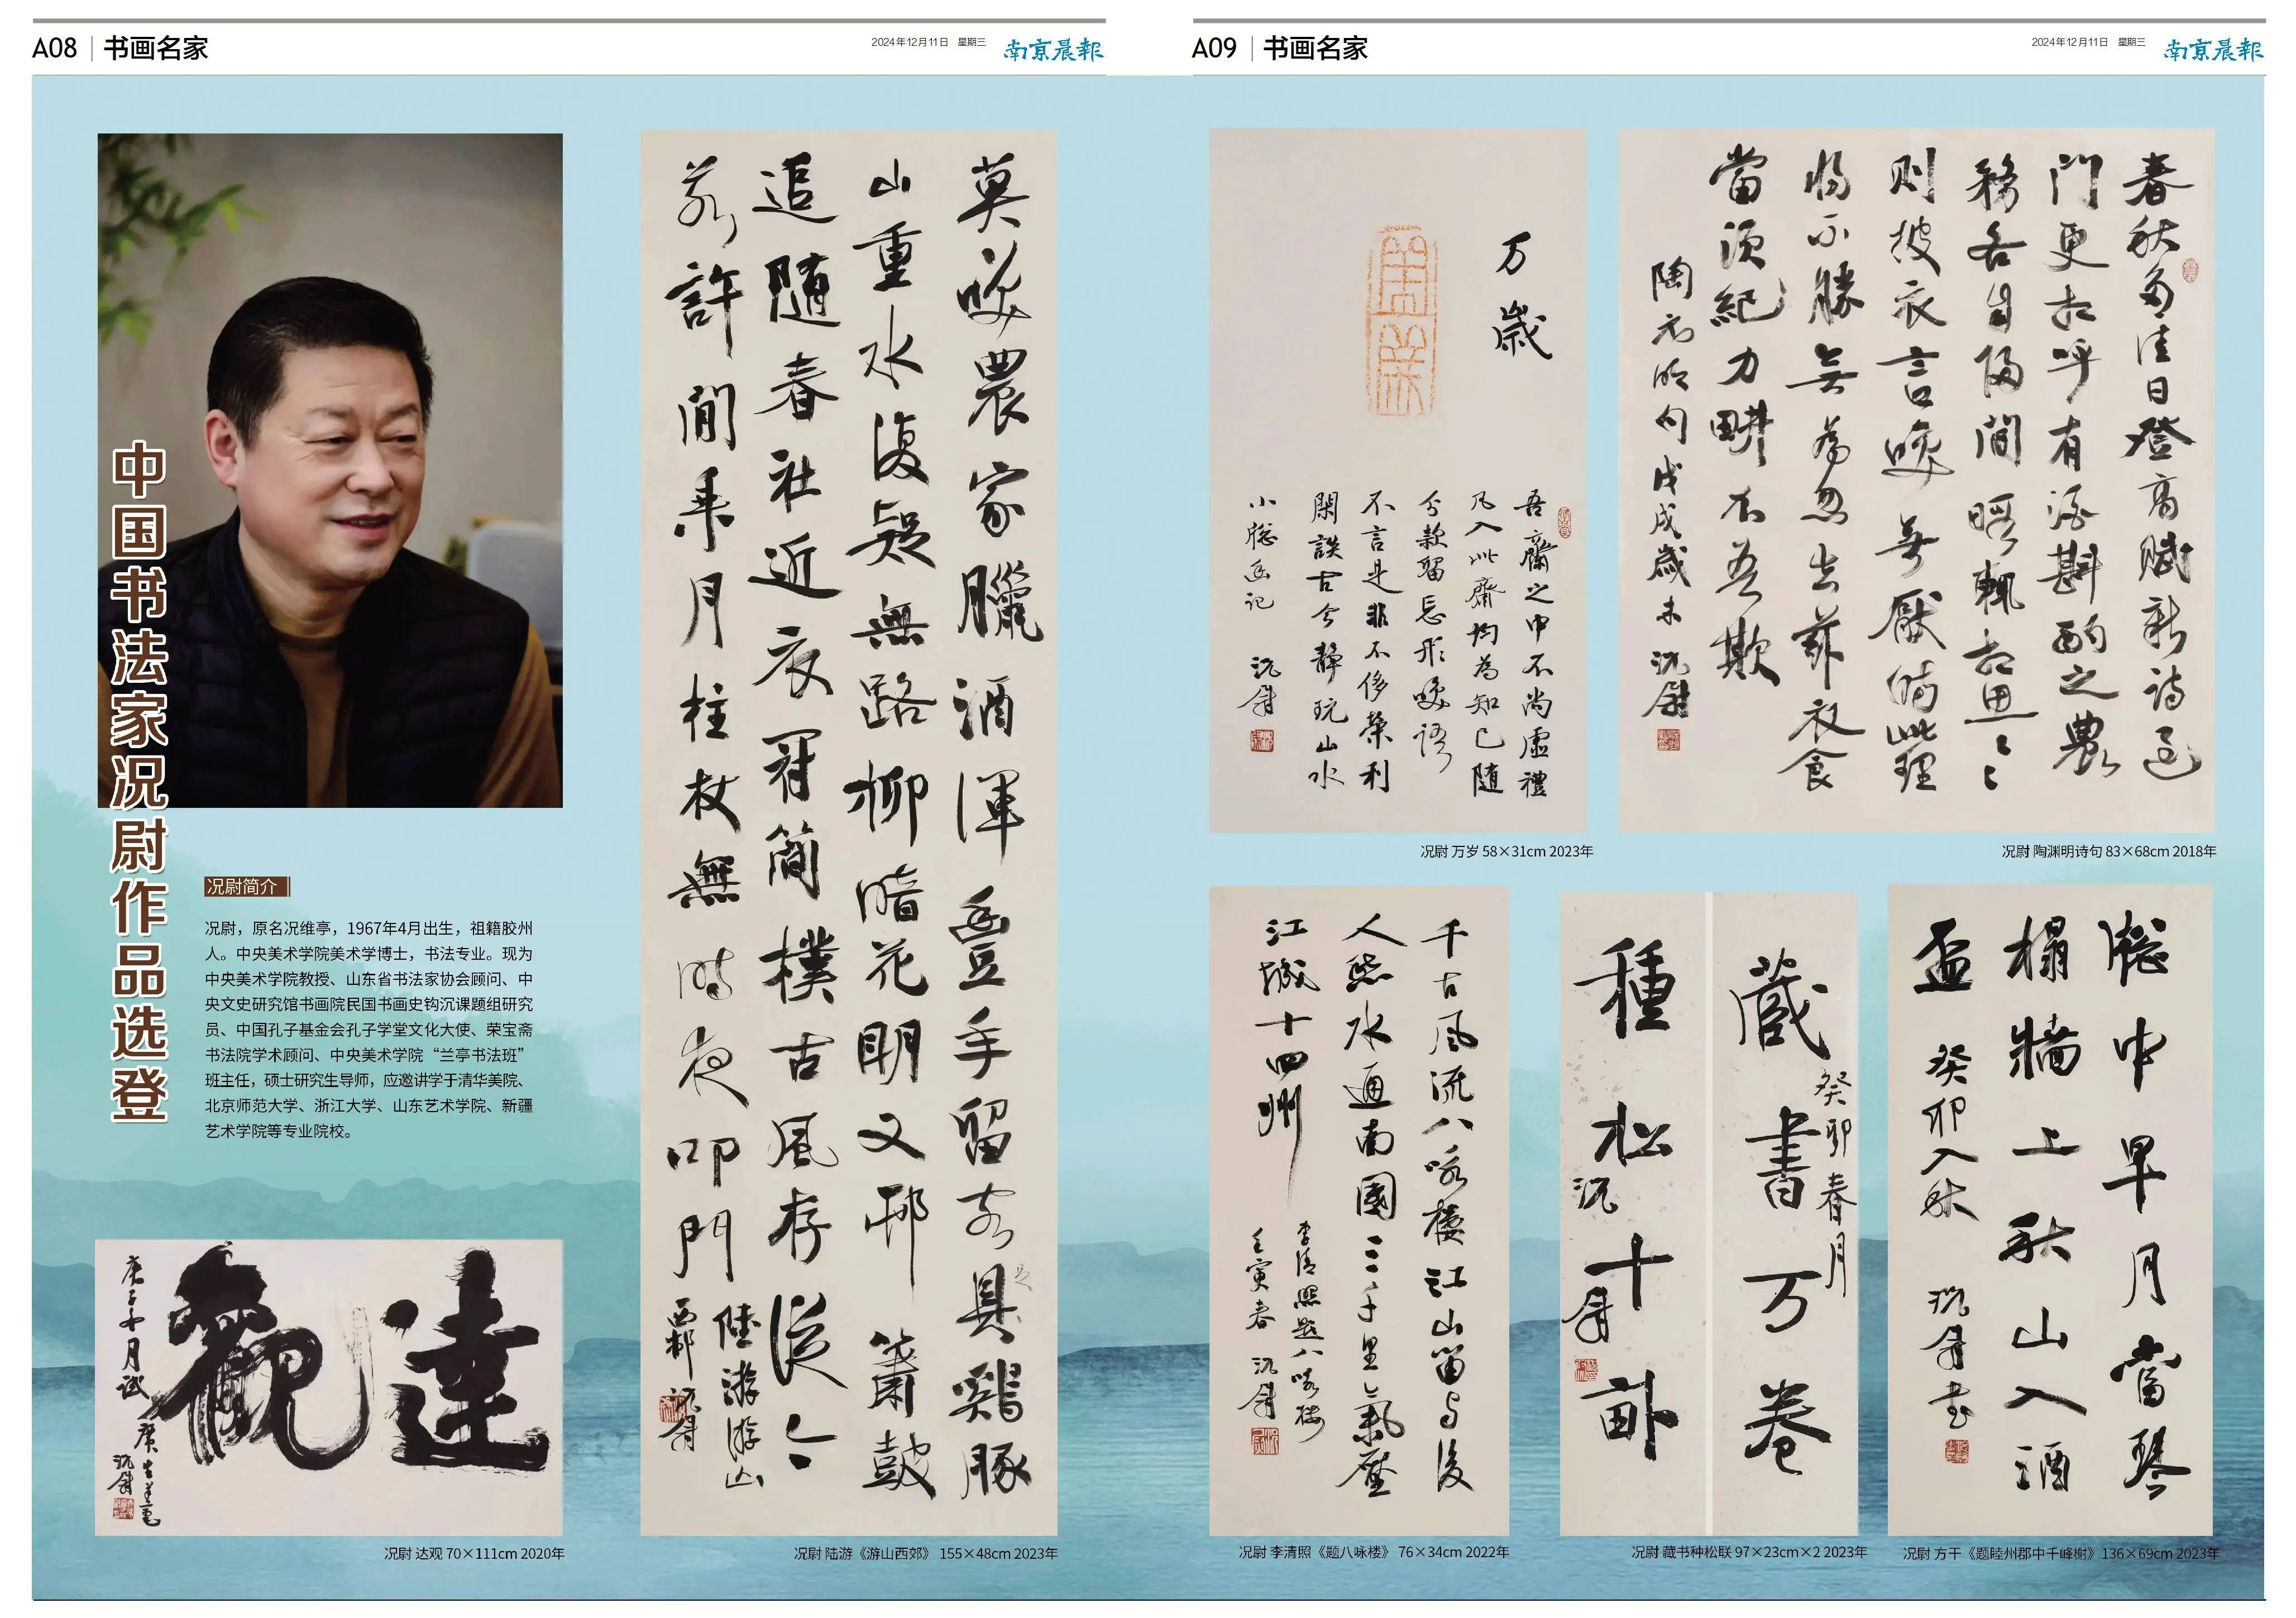 A08 书画名家
2024年12月11日 星期三 南京晨報
中国书法家况尉作品选登
况尉简介
况尉，原名况维亭，1967年4月出生，祖籍胶州
人。中央美术学院美术学博士，书法专业。现为
中央美术学院教授、山东省书法家协会顾问、中
央文史研究馆书画院民国书画史钩沉课题组研究
员、中国孔子基金会孔子学堂文化大使、荣宝斋
书法院学术顾问、中央美术学院“兰亭书法班”
班主任，硕士研究生导师，应邀讲学于清华美院、
北京师范大学、浙江大学、山东艺术学院、新疆
艺术学院等专业院校。
達觀
况尉 达观 70×111cm 2020年
莫笑農家臘酒渾豐年留客具雞豚
山重水復疑無路柳暗花明又一邨簫鼓
追隨春社近衣冠簡樸古風存從今
若許閒乘月柱杖無時夜叩門
陸游游山
西郊 况尉
况尉 陆游《游山西郊》 155×48cm 2023年
A09 书画名家
2024年12月11日 星期三 南京晨報
万歲
吾齋之中不尚虛禮
凡入此齋均為知己隨
分款留忘形笑語
不言是非不侈榮利
閑談古今靜玩山水
小窗幽记 况尉
况尉 万岁 58×31cm 2023年
春秋多佳日登高賦新詩過
門更相呼有酒斟酌之農
務各自歸閒暇輒相思〻〻
則披衣言笑無厭時此理
將不勝無為忽去茲衣食
當須紀力耕不吾欺
陶元明句戊戌歲末 况尉
况尉 陶渊明诗句 83×68cm 2018年
千古風流八咏樓江山留与後
人愁水通南國三千里氣壓
江城十四州
李清照題八咏樓
壬寅春 况尉
况尉 李清照《题八咏楼》 76×34cm 2022年
藏書万卷
癸卯春月
種松十畝
况尉
况尉 藏书种松联 97×23cm×2 2023年
窗中早月當琴
榻牆上秋山入酒
盃 癸卯入秋 况尉书
况尉 方干《题睦州郡中千峰榭》136×69cm 2023年